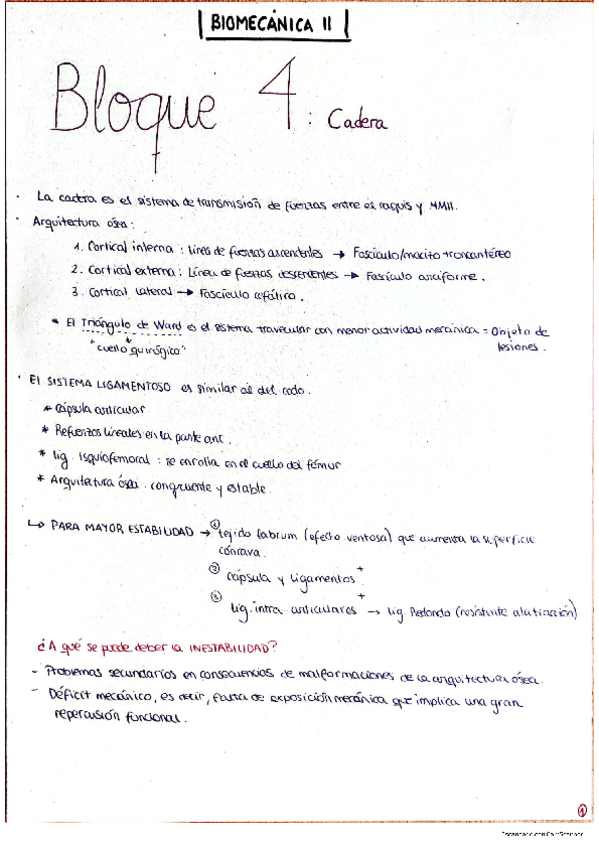 BIOMECÁNICA II
Bloque 4: Cadera
· La cadera es el sistema de transmisión de fuerzas entre el raquis y MMII.
· Arquitectura ósea:
1. Cortical interna: línea de fuerzas ascendentes → Fascículo/macizo trocantéreo
2. Cortical externa: Línea de fuerzas descendentes → Fascículo arciforme.
3. Cortical lateral → Fascículo cefálico.
* El Triángulo de Ward es el sistema travecular con menor actividad mecánica = Objeto de
"cuello quirúrgico"
lesiones.
· El SISTEMA LIGAMENTOSO es similar al del codo.
* Cápsula articular
* Refuerzos lineales en la parte ant.
* lig. Isquiofemoral: se enrolla en el cuello del fémur
* Arquitectura ósea: congruente y estable.
↳ PARA MAYOR ESTABILIDAD → ① tejido labrum (efecto ventosa) que aumenta la superficie
cóncava.
+
② cápsula y ligamentos
+
③ lig. intra articulares → lig Redondo (resistente a la tracción)
¿A qué se puede deber la INESTABILIDAD?
- Problemas secundarios en consecuencias de malformaciones de la arquitectura ósea.
- Déficit mecánico, es decir, falta de exposición mecánica que implica una gran
repercusión funcional.
①
Escaneado con CamScanner